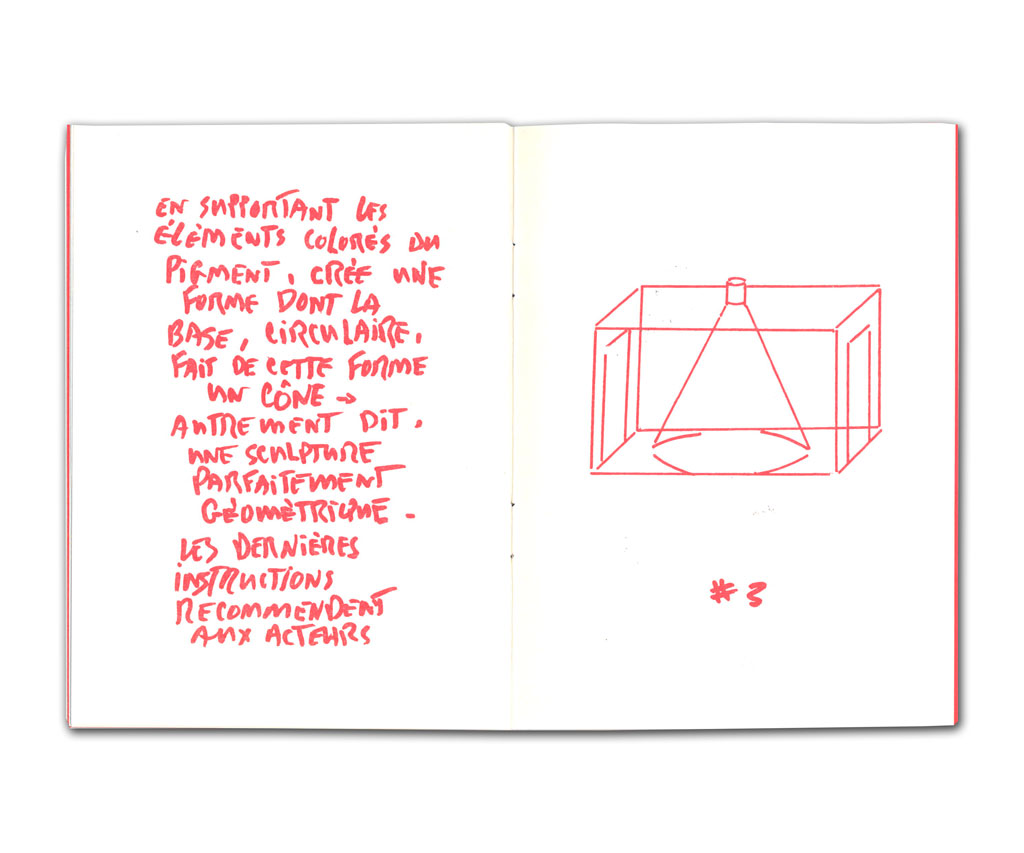 EN SUPPORTANT LES
ÉLÉMENTS COLORÉS DU
PIGMENT, CRÉE UNE
FORME DONT LA
BASE, CIRCULAIRE,
FAIT DE CETTE FORME
UN CÔNE →
AUTREMENT DIT,
UNE SCULPTURE
PARFAITEMENT
GÉOMÈTRIQUE -
LES DERNIÈRES
INSTRUCTIONS
RECOMMENDENT
AUX ACTEURS
#3